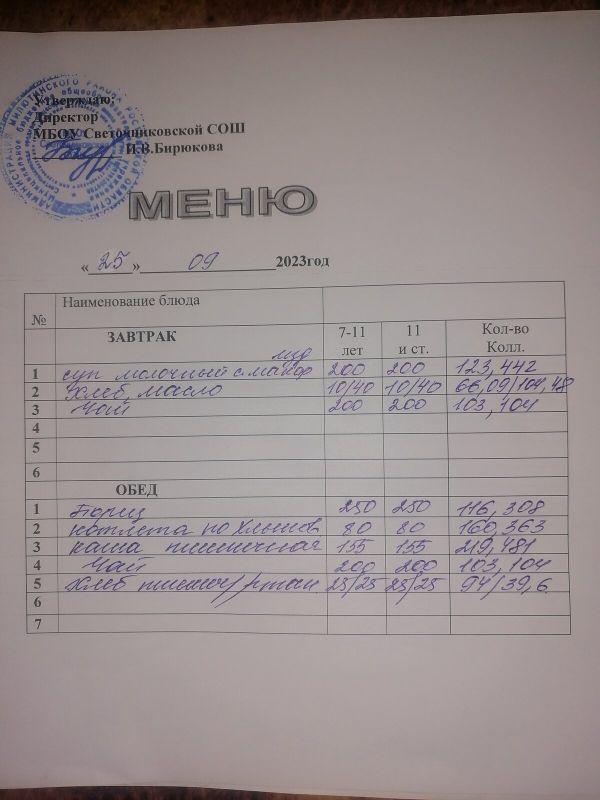 Утверждаю:
Директор
МБОУ Светочниковской СОШ
И.В.Бирюкова
МЕНЮ
« 25 » 09 2023год
№ Наименование блюда
ЗАВТРАК 7-11 лет 11 и ст. Кол-во Колл.
1 суп молочный с макар 200 200 123,442
2 хлеб, масло 10/40 10/40 66,09/104,48
3 Чай 200 200 103,104
4
5
6
ОБЕД
1 Борщ 250 250 116,308
2 котлета по 80 80 160,363
3 каша пшеничная 155 155 219,481
4 Чай 200 200 103,104
5 хлеб 25/25 25/25 94/39,6
6
7